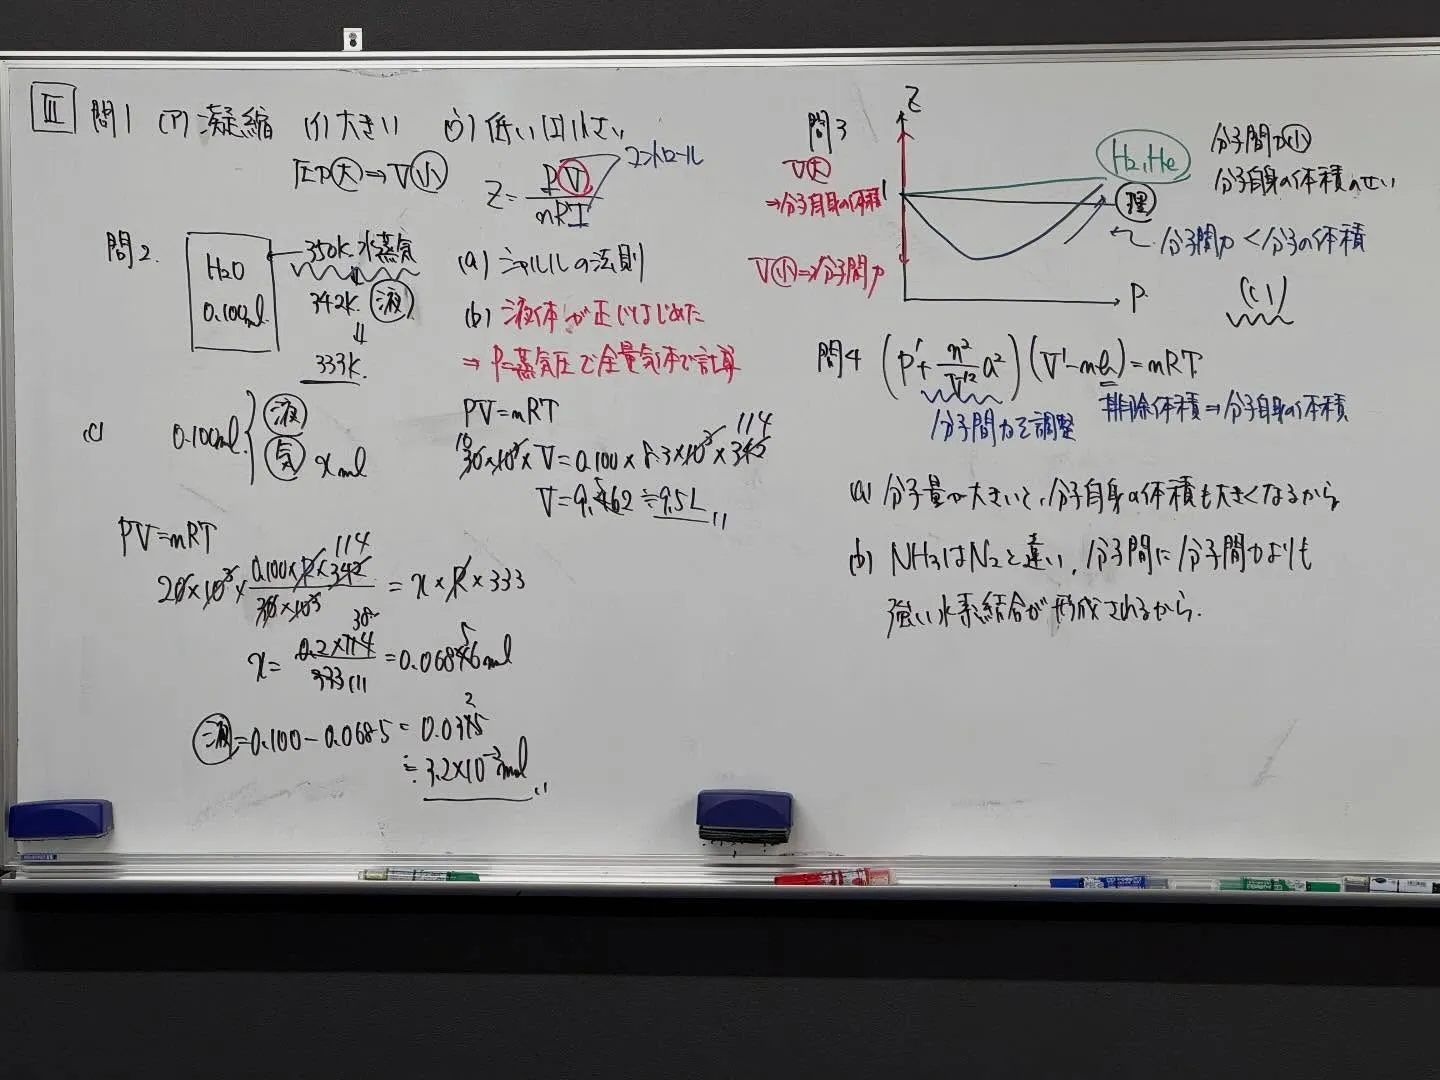 III 問1 (ア)凝縮 (イ)大きい (ウ)低い (エ)小さい
圧P大⇒V小 Z=PV/nRT コントロール
問2.
H2O
0.100mol
350K 水蒸気
342K. 液
333K.
(a) シャルルの法則
(b) 液体が生じはじめた
⇒P=蒸気圧で全量気体で計算
PV=nRT
30×10³×V=0.100×8.3×10³×342 10 114
V=9.462≒9.5L
(c) 0.100mol 液 気 x mol
PV=nRT
20×10³×0.100×R×342/30×10³=x×R×333 114
x=0.2×114/333=0.06846mol 38 111 5
液=0.100-0.0685=0.0315 2
≒3.2×10⁻²mol
問3
Z
V大
⇒分子自身の体積
V小⇒分子間力
1
P
H2,He
分子間力小
分子自身の体積のせい
理
分子間力<分子の体積
(い)
問4 (P'+n²/V'²a²)(V'-nb)=nRT
分子間力を調整 排除体積⇒分子自身の体積
(a) 分子量が大きいと、分子自身の体積も大きくなるから
(b) NH3はN2と違い、分子間に分子間力よりも
強い水素結合が形成されるから.